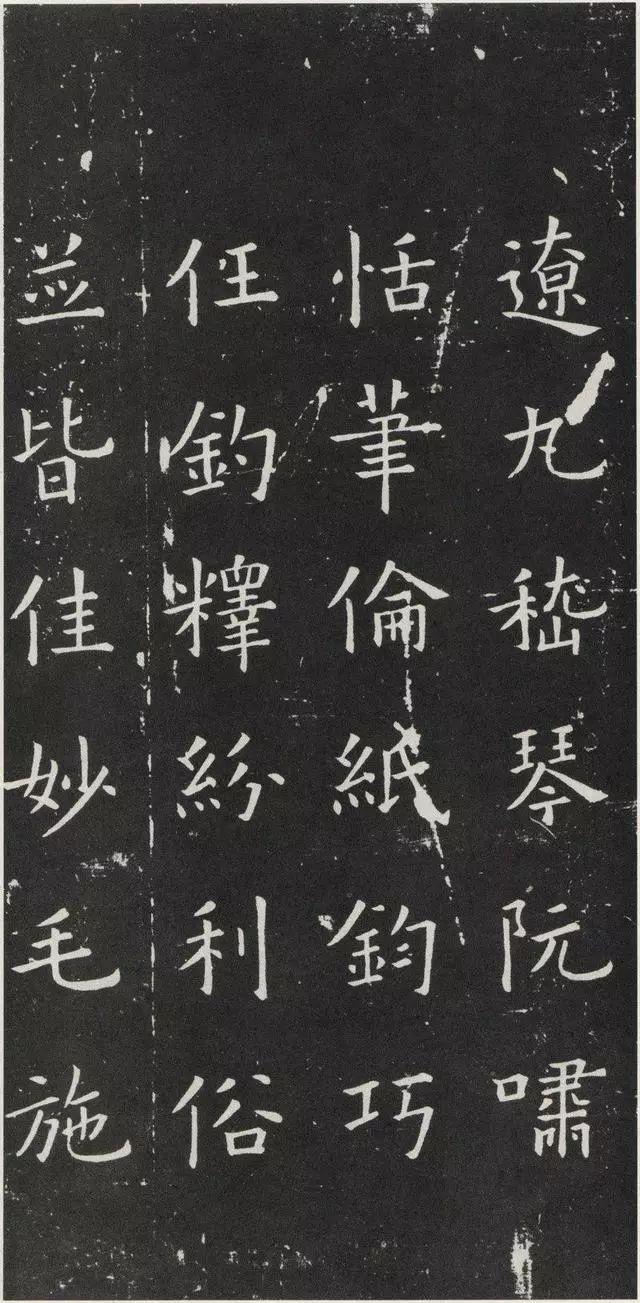 遼丸嵇琴阮嘯
恬筆倫紙鈞巧
任釣釋紛利俗
並皆佳妙毛施